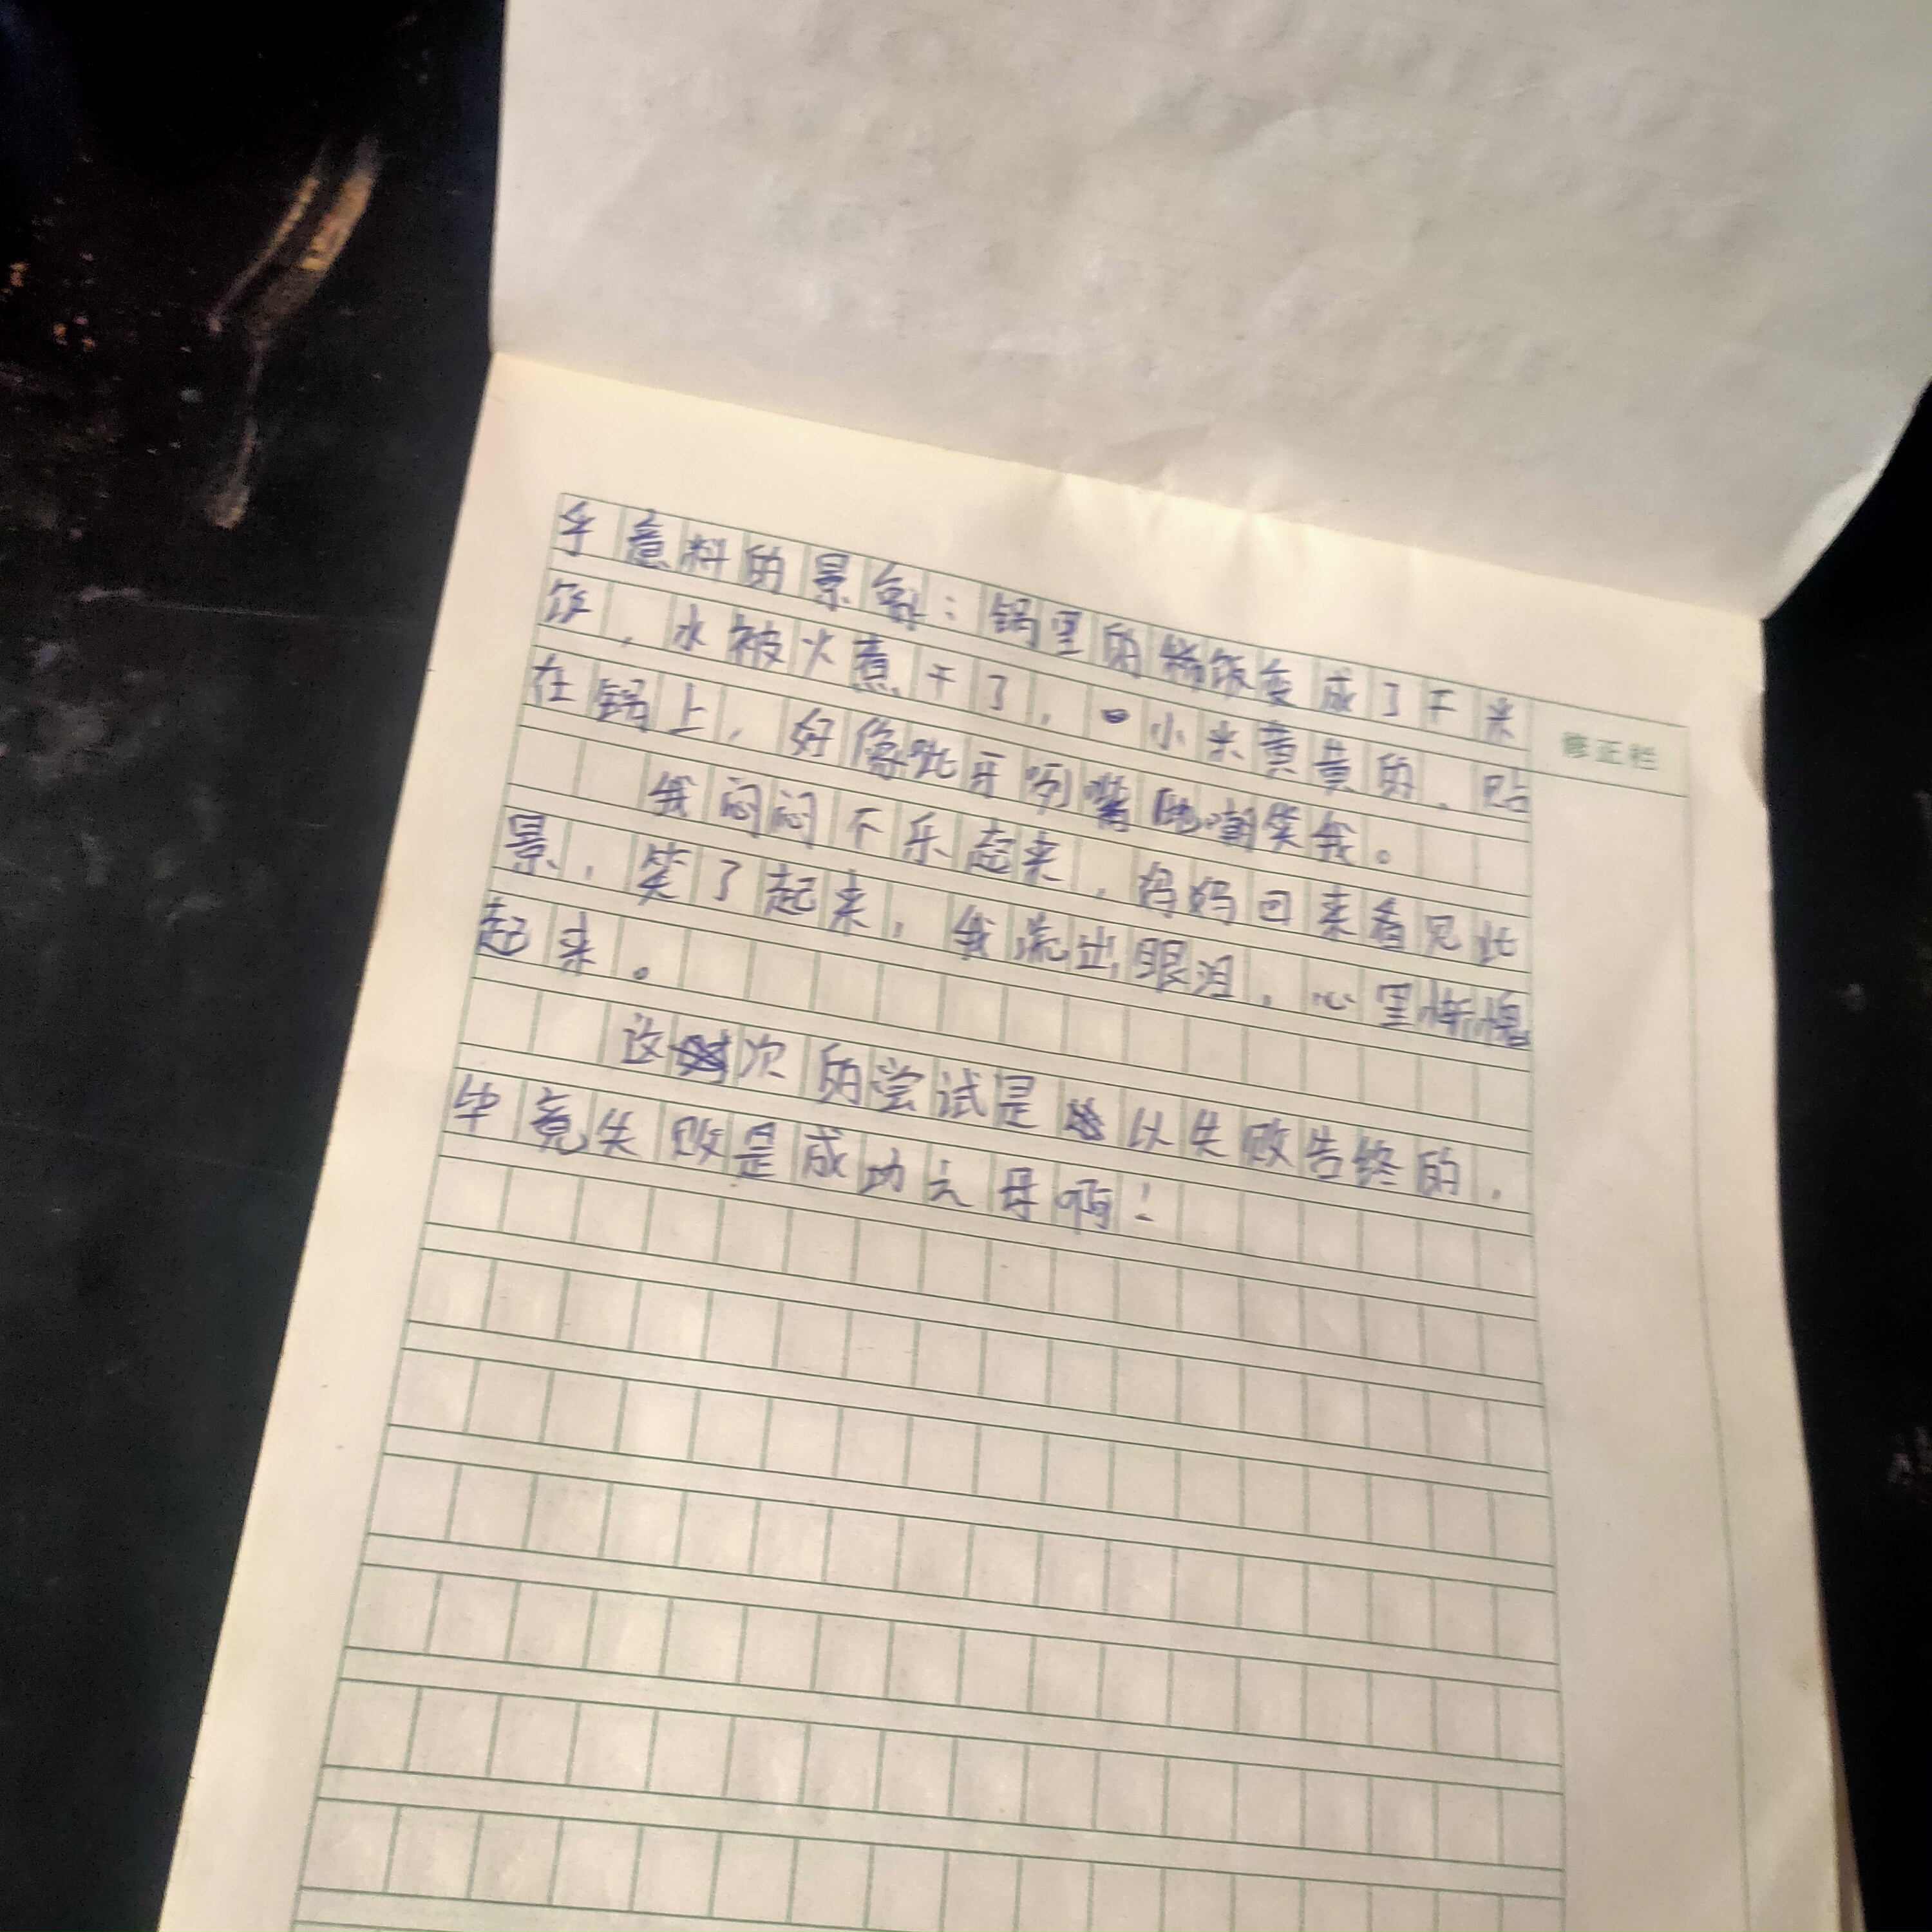 乎意料的景象：锅里的稀饭变成了干米
饭，水被火煮干了，小米黄黄的，贴
在锅上，好像呲牙咧嘴地嘲笑我。
我闷闷不乐起来，妈妈回来看见此
景，笑了起来，我流出眼泪，心里惭愧
起来。
这次的尝试是以失败告终的，
毕竟失败是成功之母啊！
修正栏